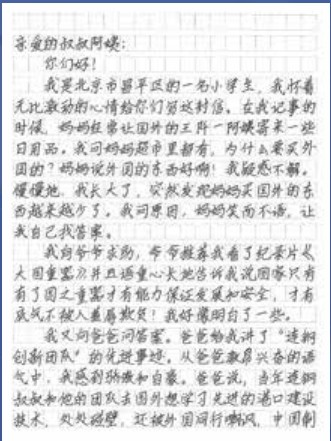 亲爱的叔叔阿姨:
你们好!
我是北京市昌平区的一名小学生,我怀着
无比激动的心情给你们写这封信。在我记事的
时候,妈妈经常让国外的王阿姨寄来一些
日用品。我问妈妈超市里都有,为什么要买外
国的?妈妈说外国的东西好啊!我疑惑不解。
慢慢地,我长大了,突然发现妈妈买国外的东
西越来越少了。我问原因,妈妈笑而不语,让
我自己找答案。
我向爷爷求助,爷爷推荐我看了纪录片《
大国重器》并且语重心长地告诉我说国家只有
有了国之重器才有能力保证发展和安全,才有
底气不被人羞辱欺负!我好像明白了一些。
我又向爸爸问答案。爸爸给我讲了“连钢
创新团队”的先进事迹。从爸爸兴奋的语
气中,我感到骄傲和自豪。爸爸说,当年连钢
叔叔和他的团队去国外想学习先进的港口建设
技术,处处碰壁,还被外国同行嘲讽,中国制